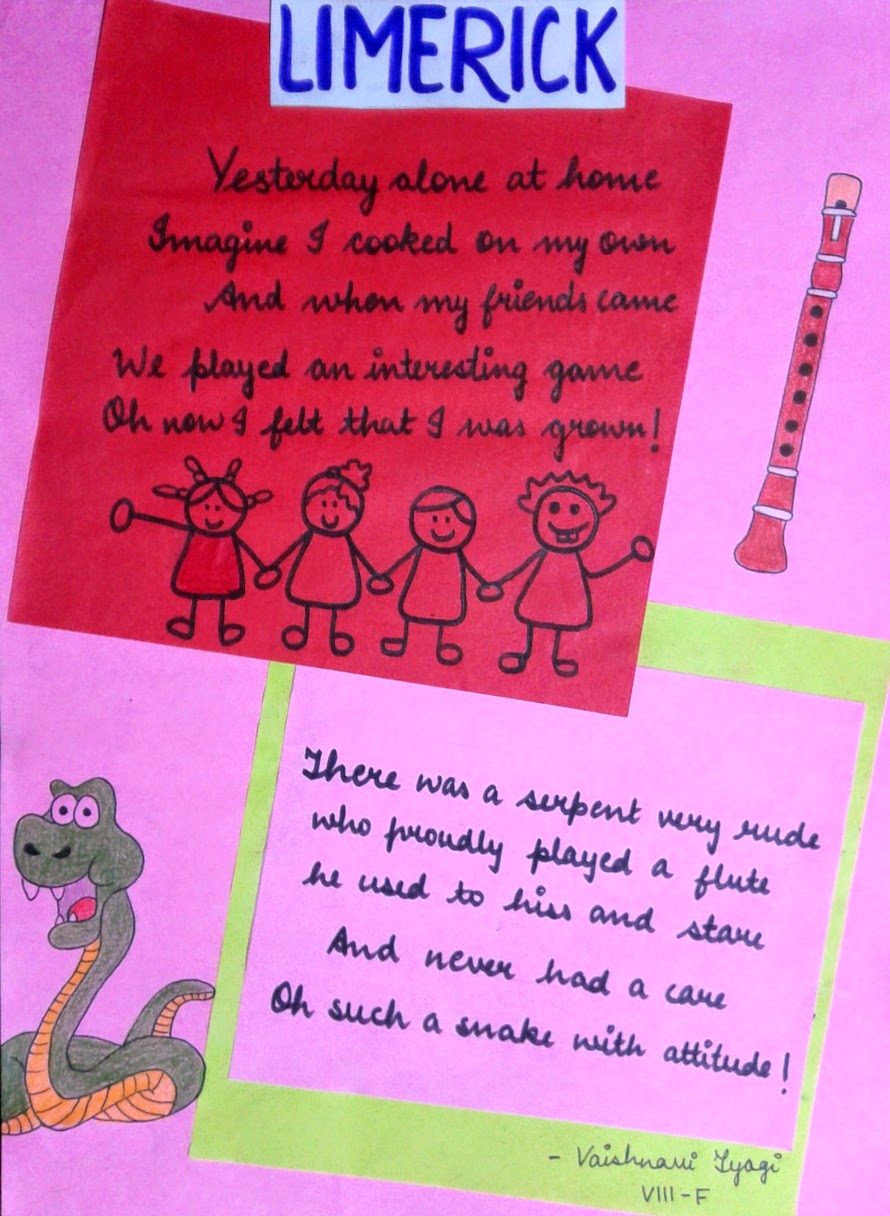 LIMERICK
Yesterday alone at home
Imagine I cooked on my own
And when my friends came
We played an interesting game
Oh now I felt that I was grown!
There was a serpent very rude
who proudly played a flute
he used to hiss and stare
And never had a care
Oh such a snake with attitude!
- Vaishnavi Tyagi
VIII-F